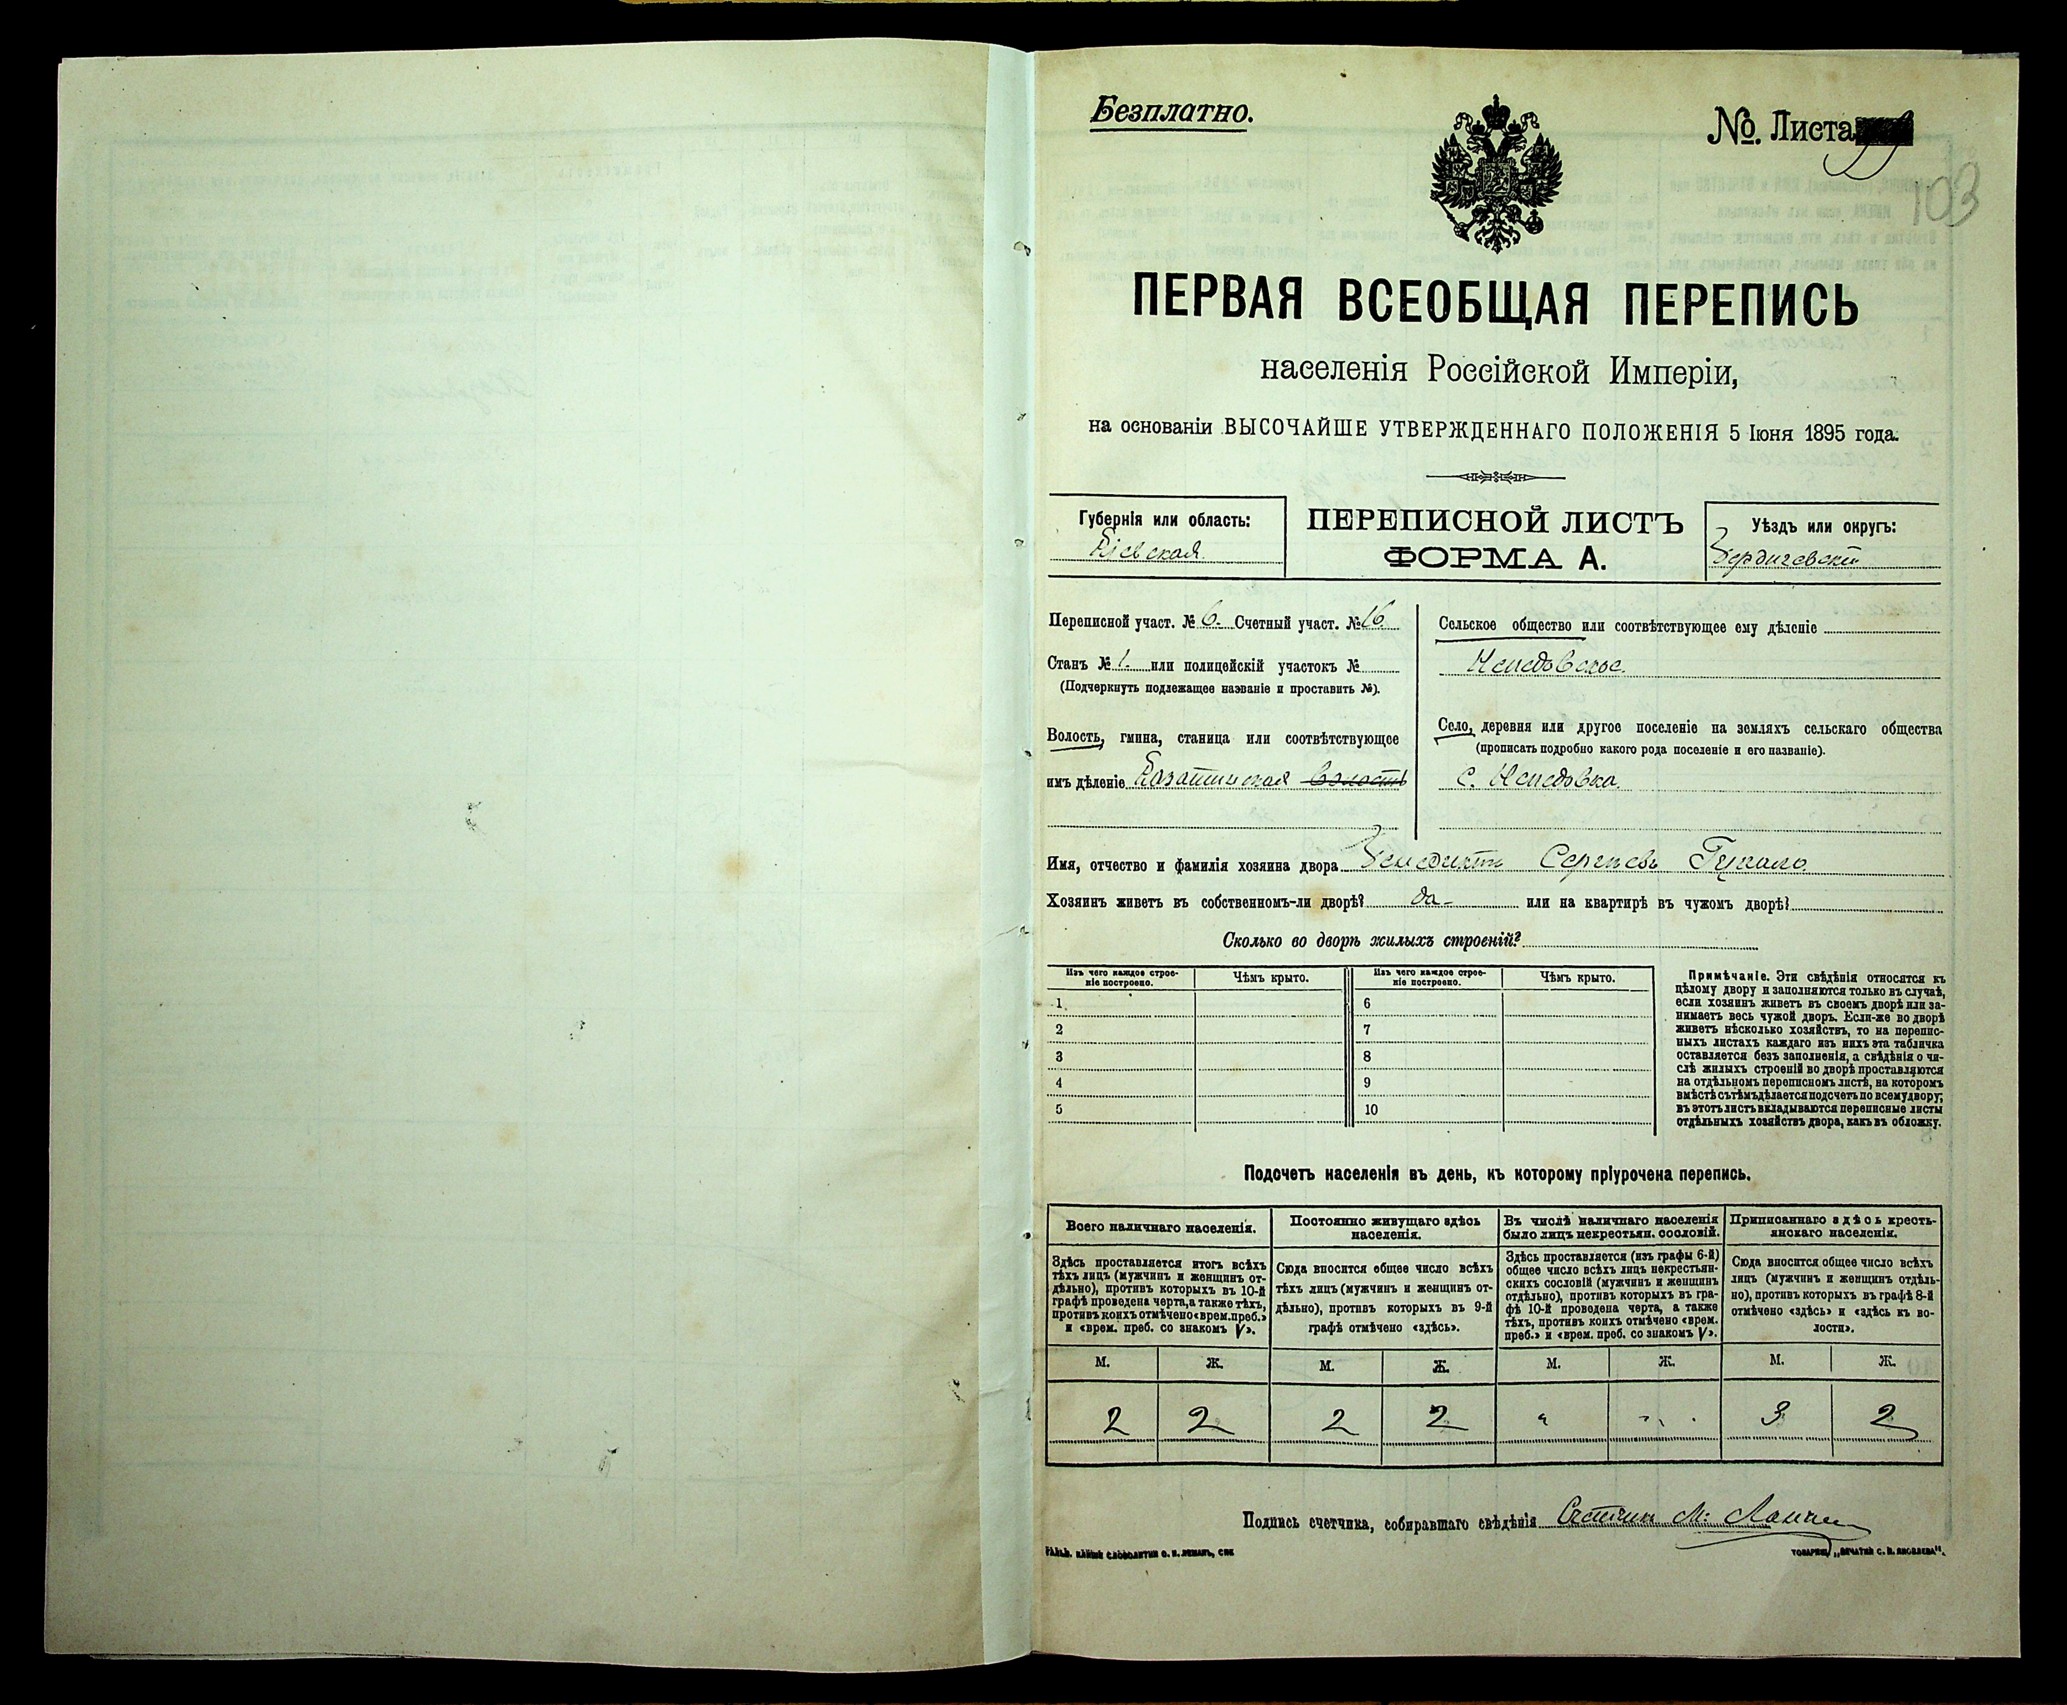 Безплатно.
№. Листа
103
ПЕРВАЯ ВСЕОБЩАЯ ПЕРЕПИСЬ
населенія Россійской Имперіи,
на основаніи ВЫСОЧАЙШЕ УТВЕРЖДЕННАГО ПОЛОЖЕНІЯ 5 Іюня 1895 года.
Губернія или область:
Кіевская
ПЕРЕПИСНОЙ ЛИСТЪ
ФОРМА А.
Уѣздъ или округъ:
Бердичевскій
Переписной участ. № 6. Счетный участ. № 16.
Станъ № 1. или полицейскій участокъ №
(Подчеркнуть подлежащее названіе и проставить №).
Волость, гмина, станица или соотвѣтствующее
имъ дѣленіе Казатинская волость
Сельское общество или соотвѣтствующее ему дѣленіе
Непедовское.
Село, деревня или другое поселеніе на земляхъ сельскаго общества
(прописать подробно какого рода поселеніе и его названіе).
с. Непедовка
Имя, отчество и фамилія хозяина двора Бенедиктъ Сергіевъ Гукало
Хозяинъ живетъ въ собственномъ-ли дворѣ? да или на квартирѣ въ чужомъ дворѣ?
Сколько во дворѣ жилыхъ строеній?
Изъ чего каждое строе-
ніе построено.
Чѣмъ крыто.
Изъ чего каждое строе-
ніе построено.
Чѣмъ крыто.
1 6
2 7
3 8
4 9
5 10
Примѣчаніе. Эти свѣдѣнія относятся къ
цѣлому двору и заполняются только въ случаѣ,
если хозяинъ живетъ въ своемъ дворѣ или за-
нимаетъ весь чужой дворъ. Если-же во дворѣ
живетъ нѣсколько хозяйствъ, то на перепис-
ныхъ листахъ каждаго изъ нихъ эта табличка
оставляется безъ заполненія, а свѣдѣнія о чи-
слѣ жилыхъ строеній во дворѣ проставляются
на отдѣльномъ переписномъ листѣ, на которомъ
вмѣстѣ съ тѣмъ дѣлается подсчетъ по всему двору;
въ этотъ листъ вкладываются переписные листы
отдѣльныхъ хозяйствъ двора, какъ въ обложку.
Подсчетъ населенія въ день, къ которому пріурочена перепись.
Всего наличнаго населенія.
Здѣсь проставляется итогъ всѣхъ
тѣхъ лицъ (мужчинъ и женщинъ от-
дѣльно), противъ которыхъ въ 10-й
графѣ проведена черта, а также тѣхъ,
противъ коихъ отмѣчено «врем. преб.»
и «врем. преб. со знакомъ V».
Постоянно живущаго здѣсь
населенія.
Сюда вносится общее число всѣхъ
тѣхъ лицъ (мужчинъ и женщинъ от-
дѣльно), противъ которыхъ въ 9-й
графѣ отмѣчено «здѣсь».
Въ числѣ наличнаго населенія
было лицъ некрестьян. сословій.
Здѣсь проставляется (изъ графы 6-й)
общее число всѣхъ лицъ некрестьян-
скихъ сословій (мужчинъ и женщинъ
отдѣльно), противъ которыхъ въ гра-
фѣ 10-й проведена черта, а также
тѣхъ, противъ коихъ отмѣчено «врем.
преб.» и «врем. преб. со знакомъ V».
Приписаннаго здѣсь кресть-
янскаго населенія.
Сюда вносится общее число всѣхъ
лицъ (мужчинъ и женщинъ отдѣль-
но), противъ которыхъ въ графѣ 8-й
отмѣчено «здѣсь» и «здѣсь къ во-
лости».
М. Ж. М. Ж. М. Ж. М. Ж.
2 2 2 2 " " 3 2
Подпись счетчика, собиравшаго свѣдѣнія Счетчикъ М.